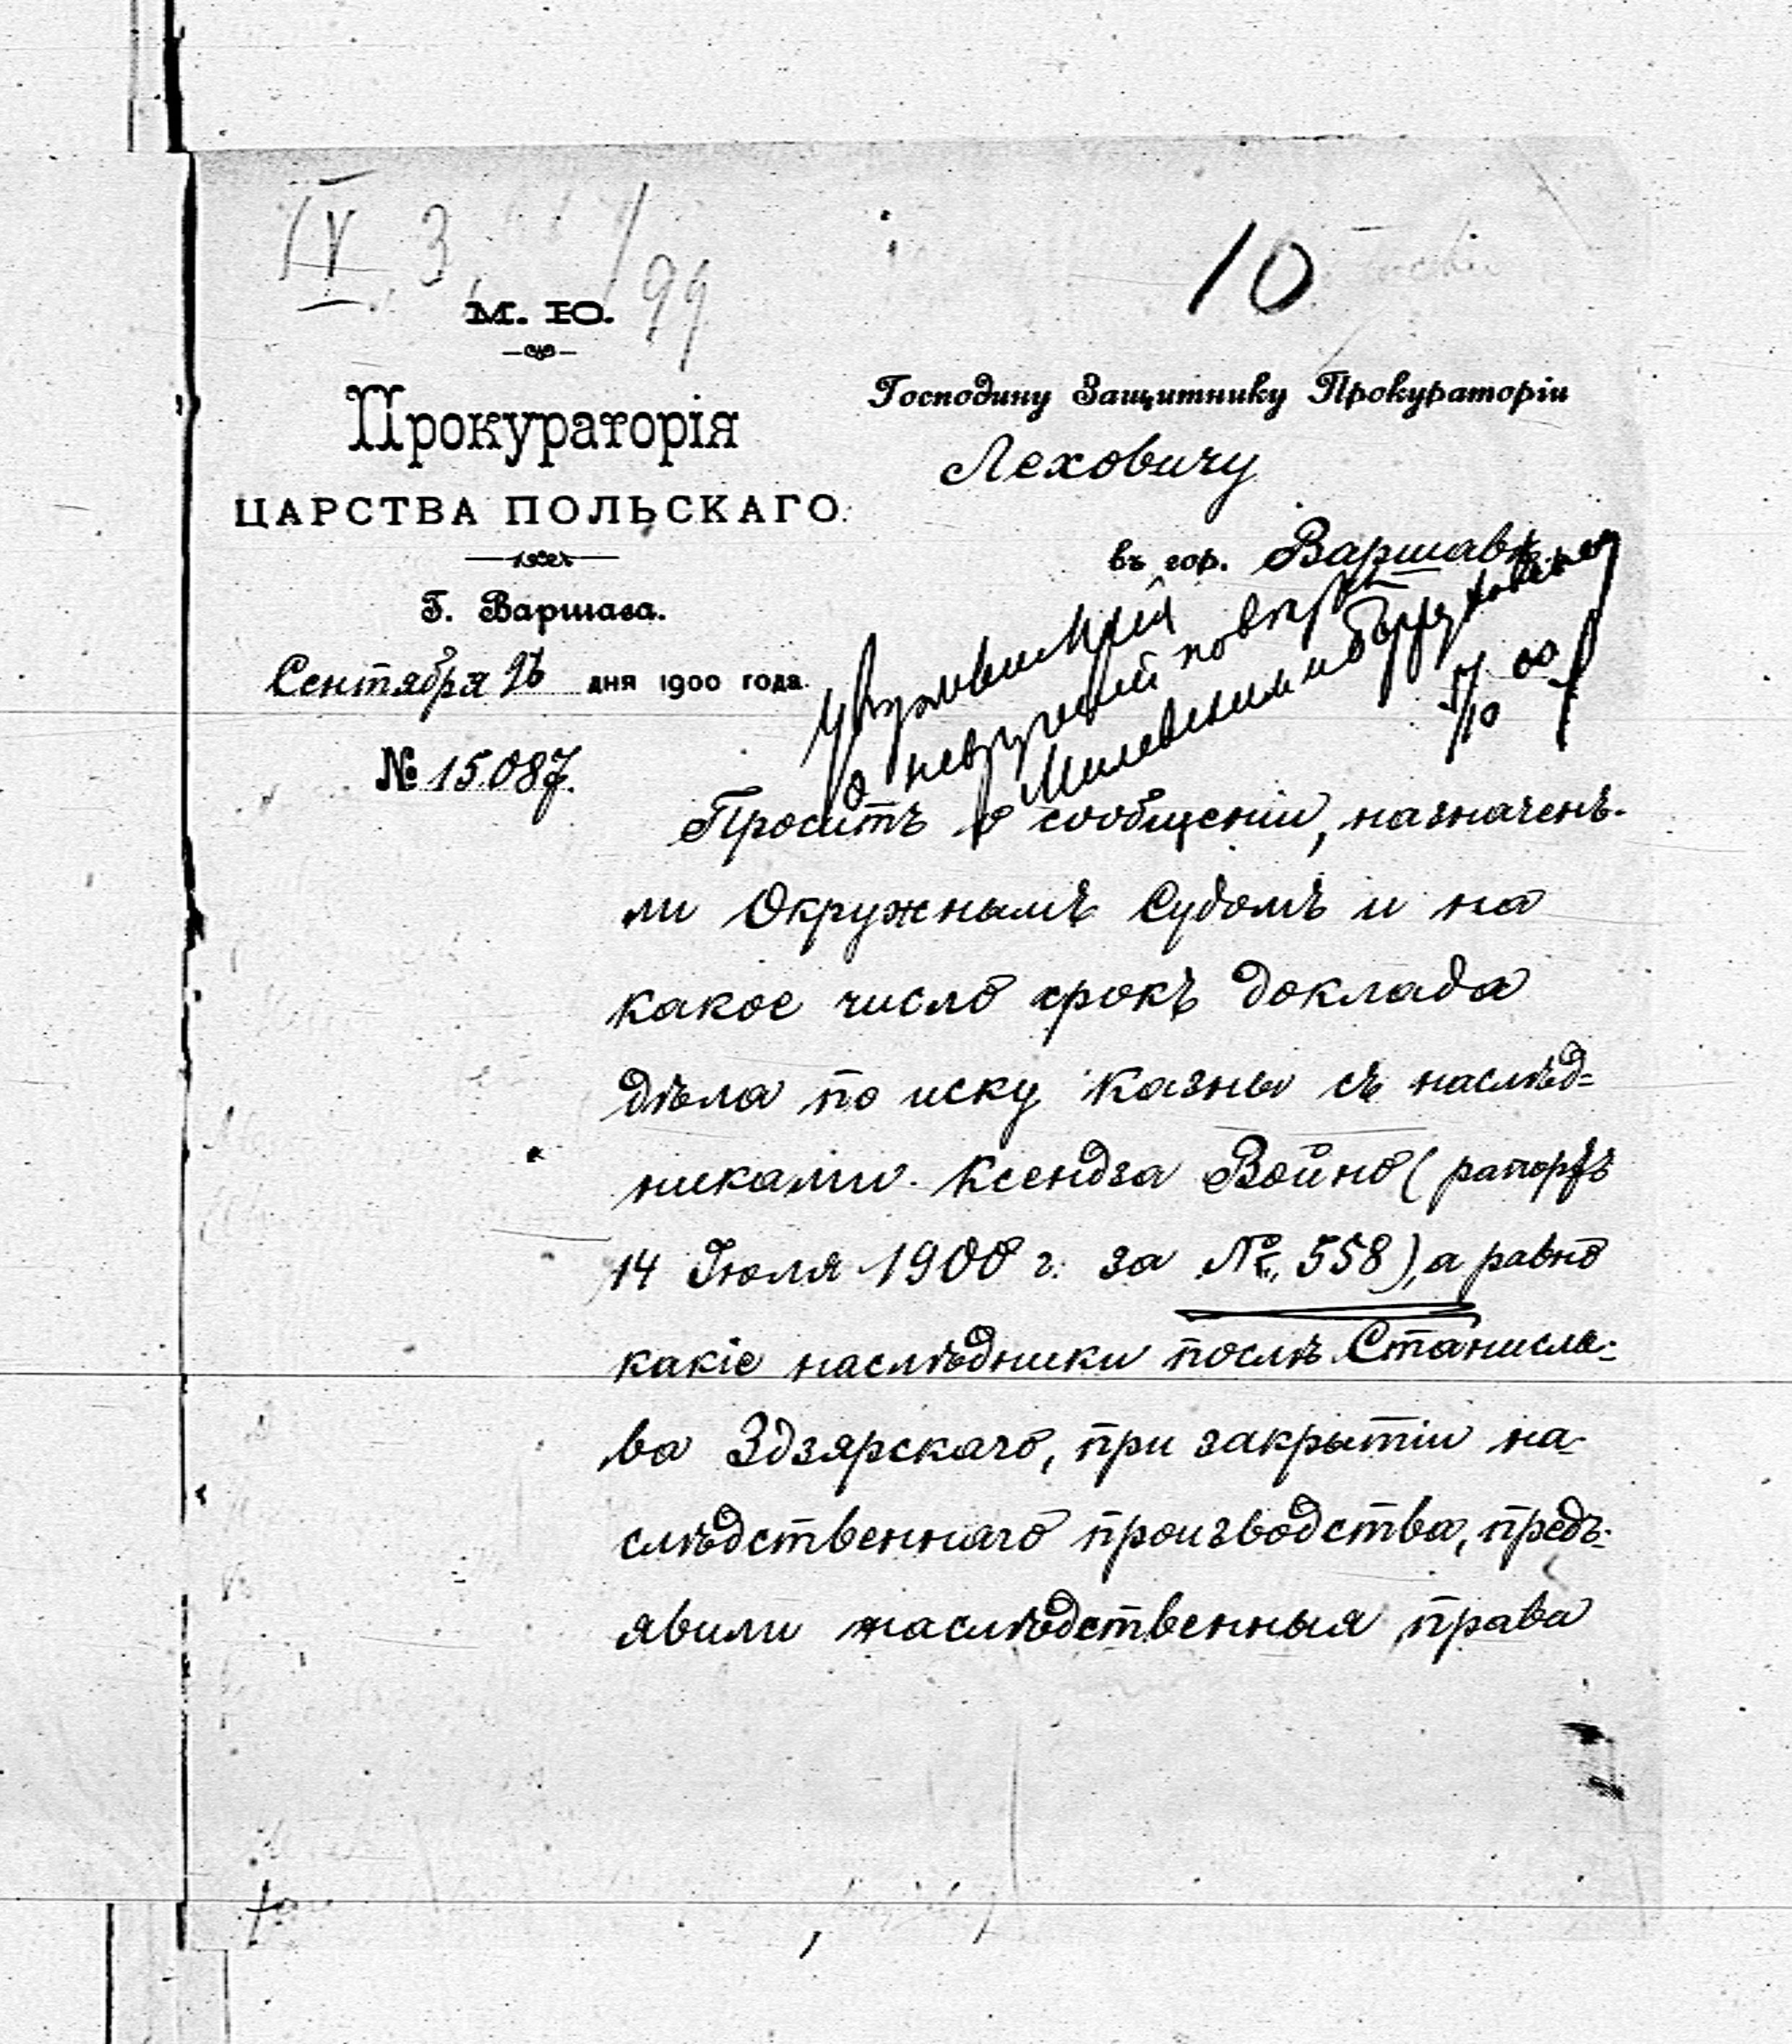 IV 3, /99
10
М. Ю.
Прокураторія
ЦАРСТВА ПОЛЬСКАГО.
Г. Варшава.
Сентября 26 дня 1900 года.
№ 15.087.
Господину Защитнику Прокураторіи
Леховичу
въ гор. Варшавѣ
о невручен повѣст
Милевским и
5/10 00
Проситъ о сообщеніи, назначенъ-
ли Окружнымъ Судомъ и на
какое число срокъ доклада
дѣла по иску Казны съ наслѣд=
никами Ксендза Войно (рапортъ
14 Іюля 1900 г. за № 558), а равно
какіе наслѣдники послѣ Станисла-
ва Здзярскаго, при закрытіи на-
слѣдственнаго производства, предъ-
явили наслѣдственныя права